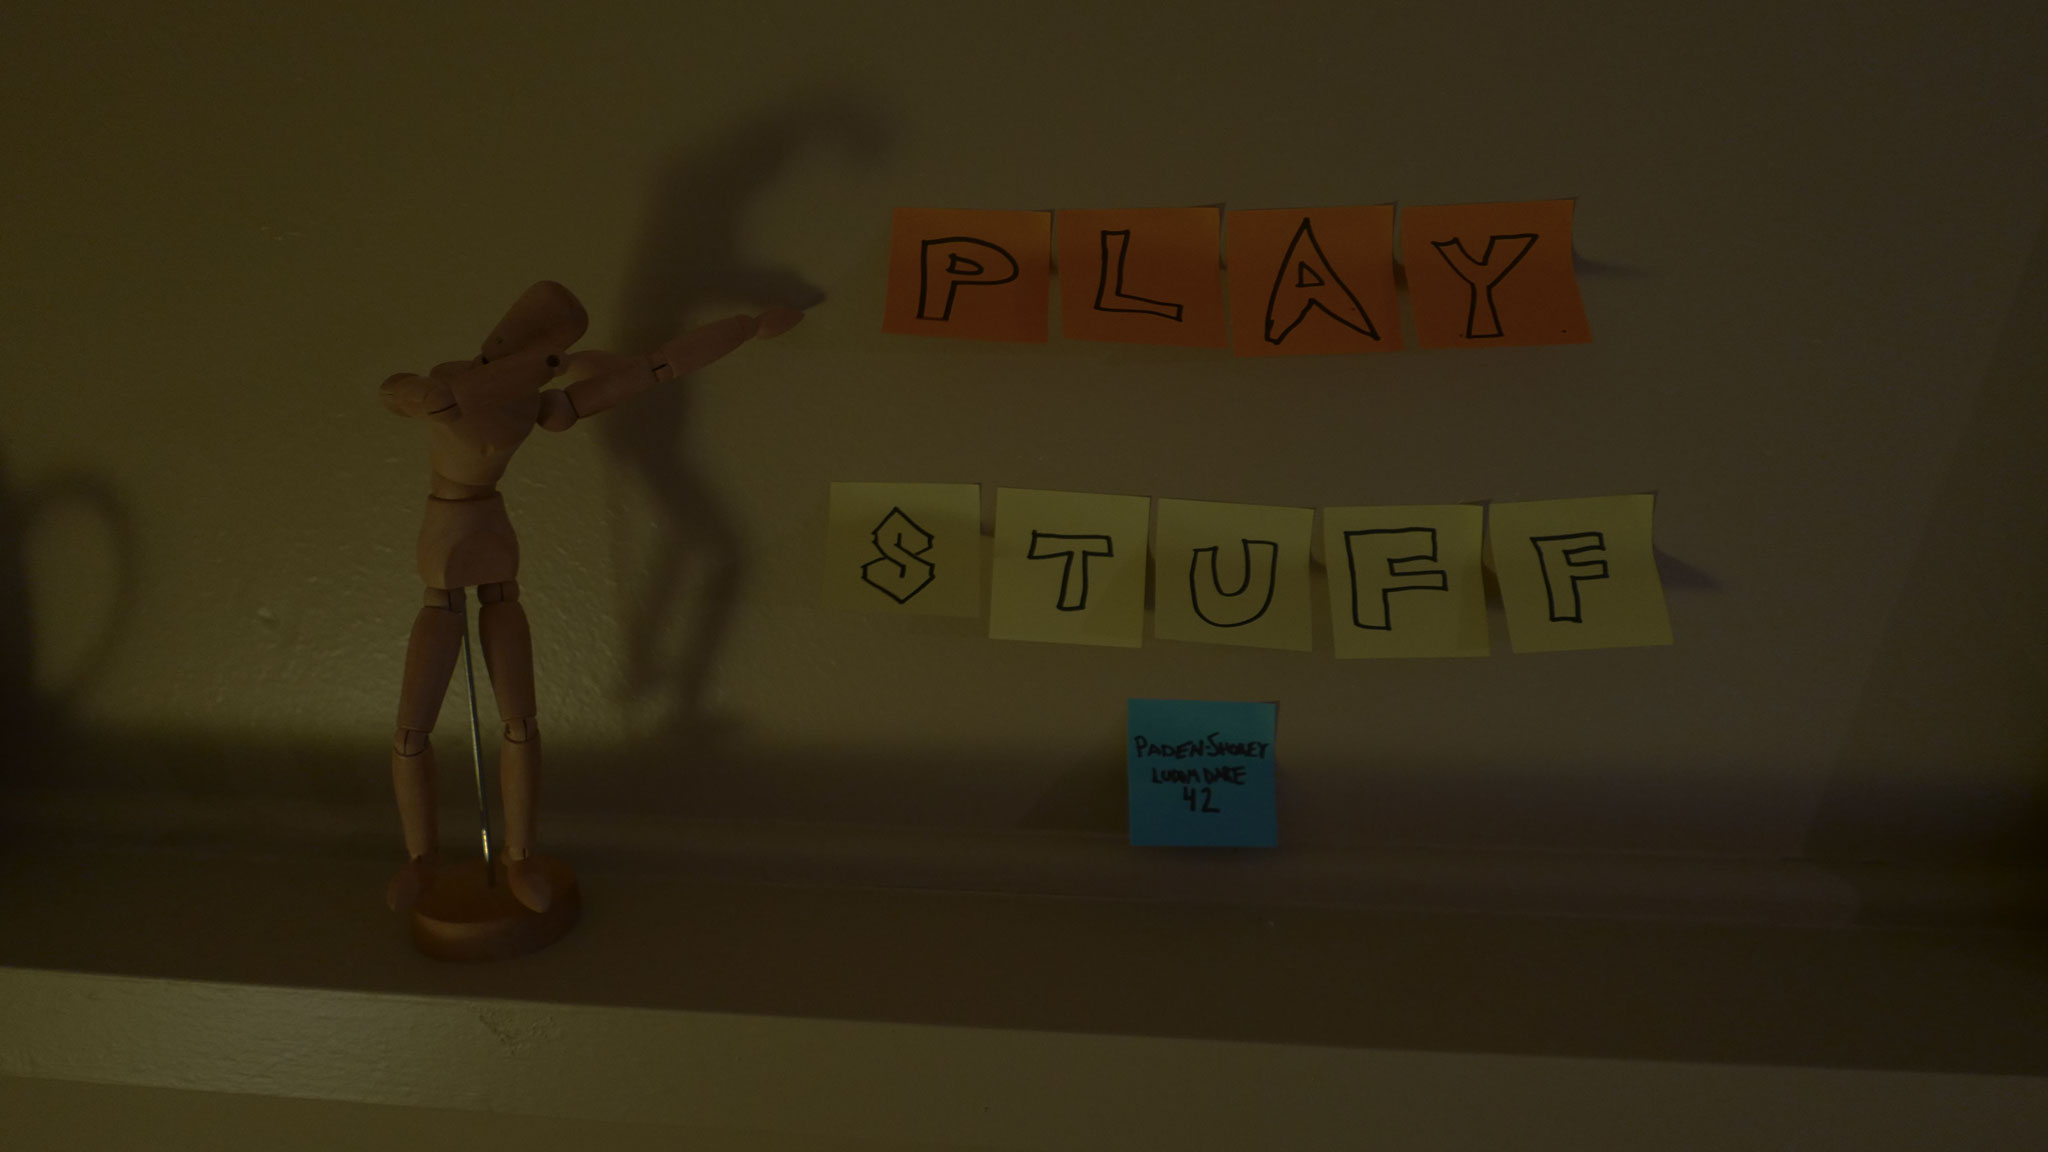 PLAY
STUFF
PADEN-SHOREY
LUDUM DARE
42